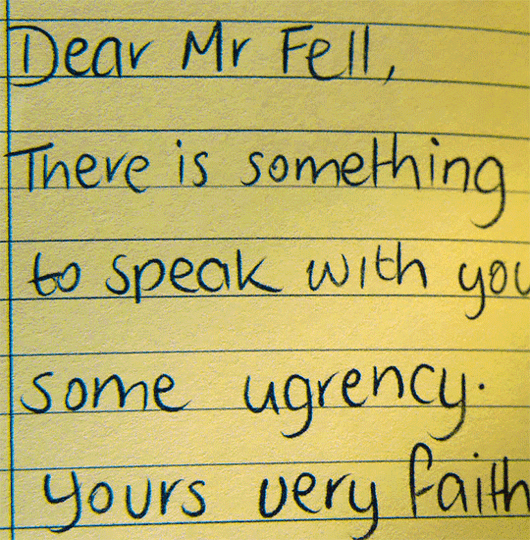 Dear Mr Fell,
There is something
to speak with you
some ugrency.
yours very faith